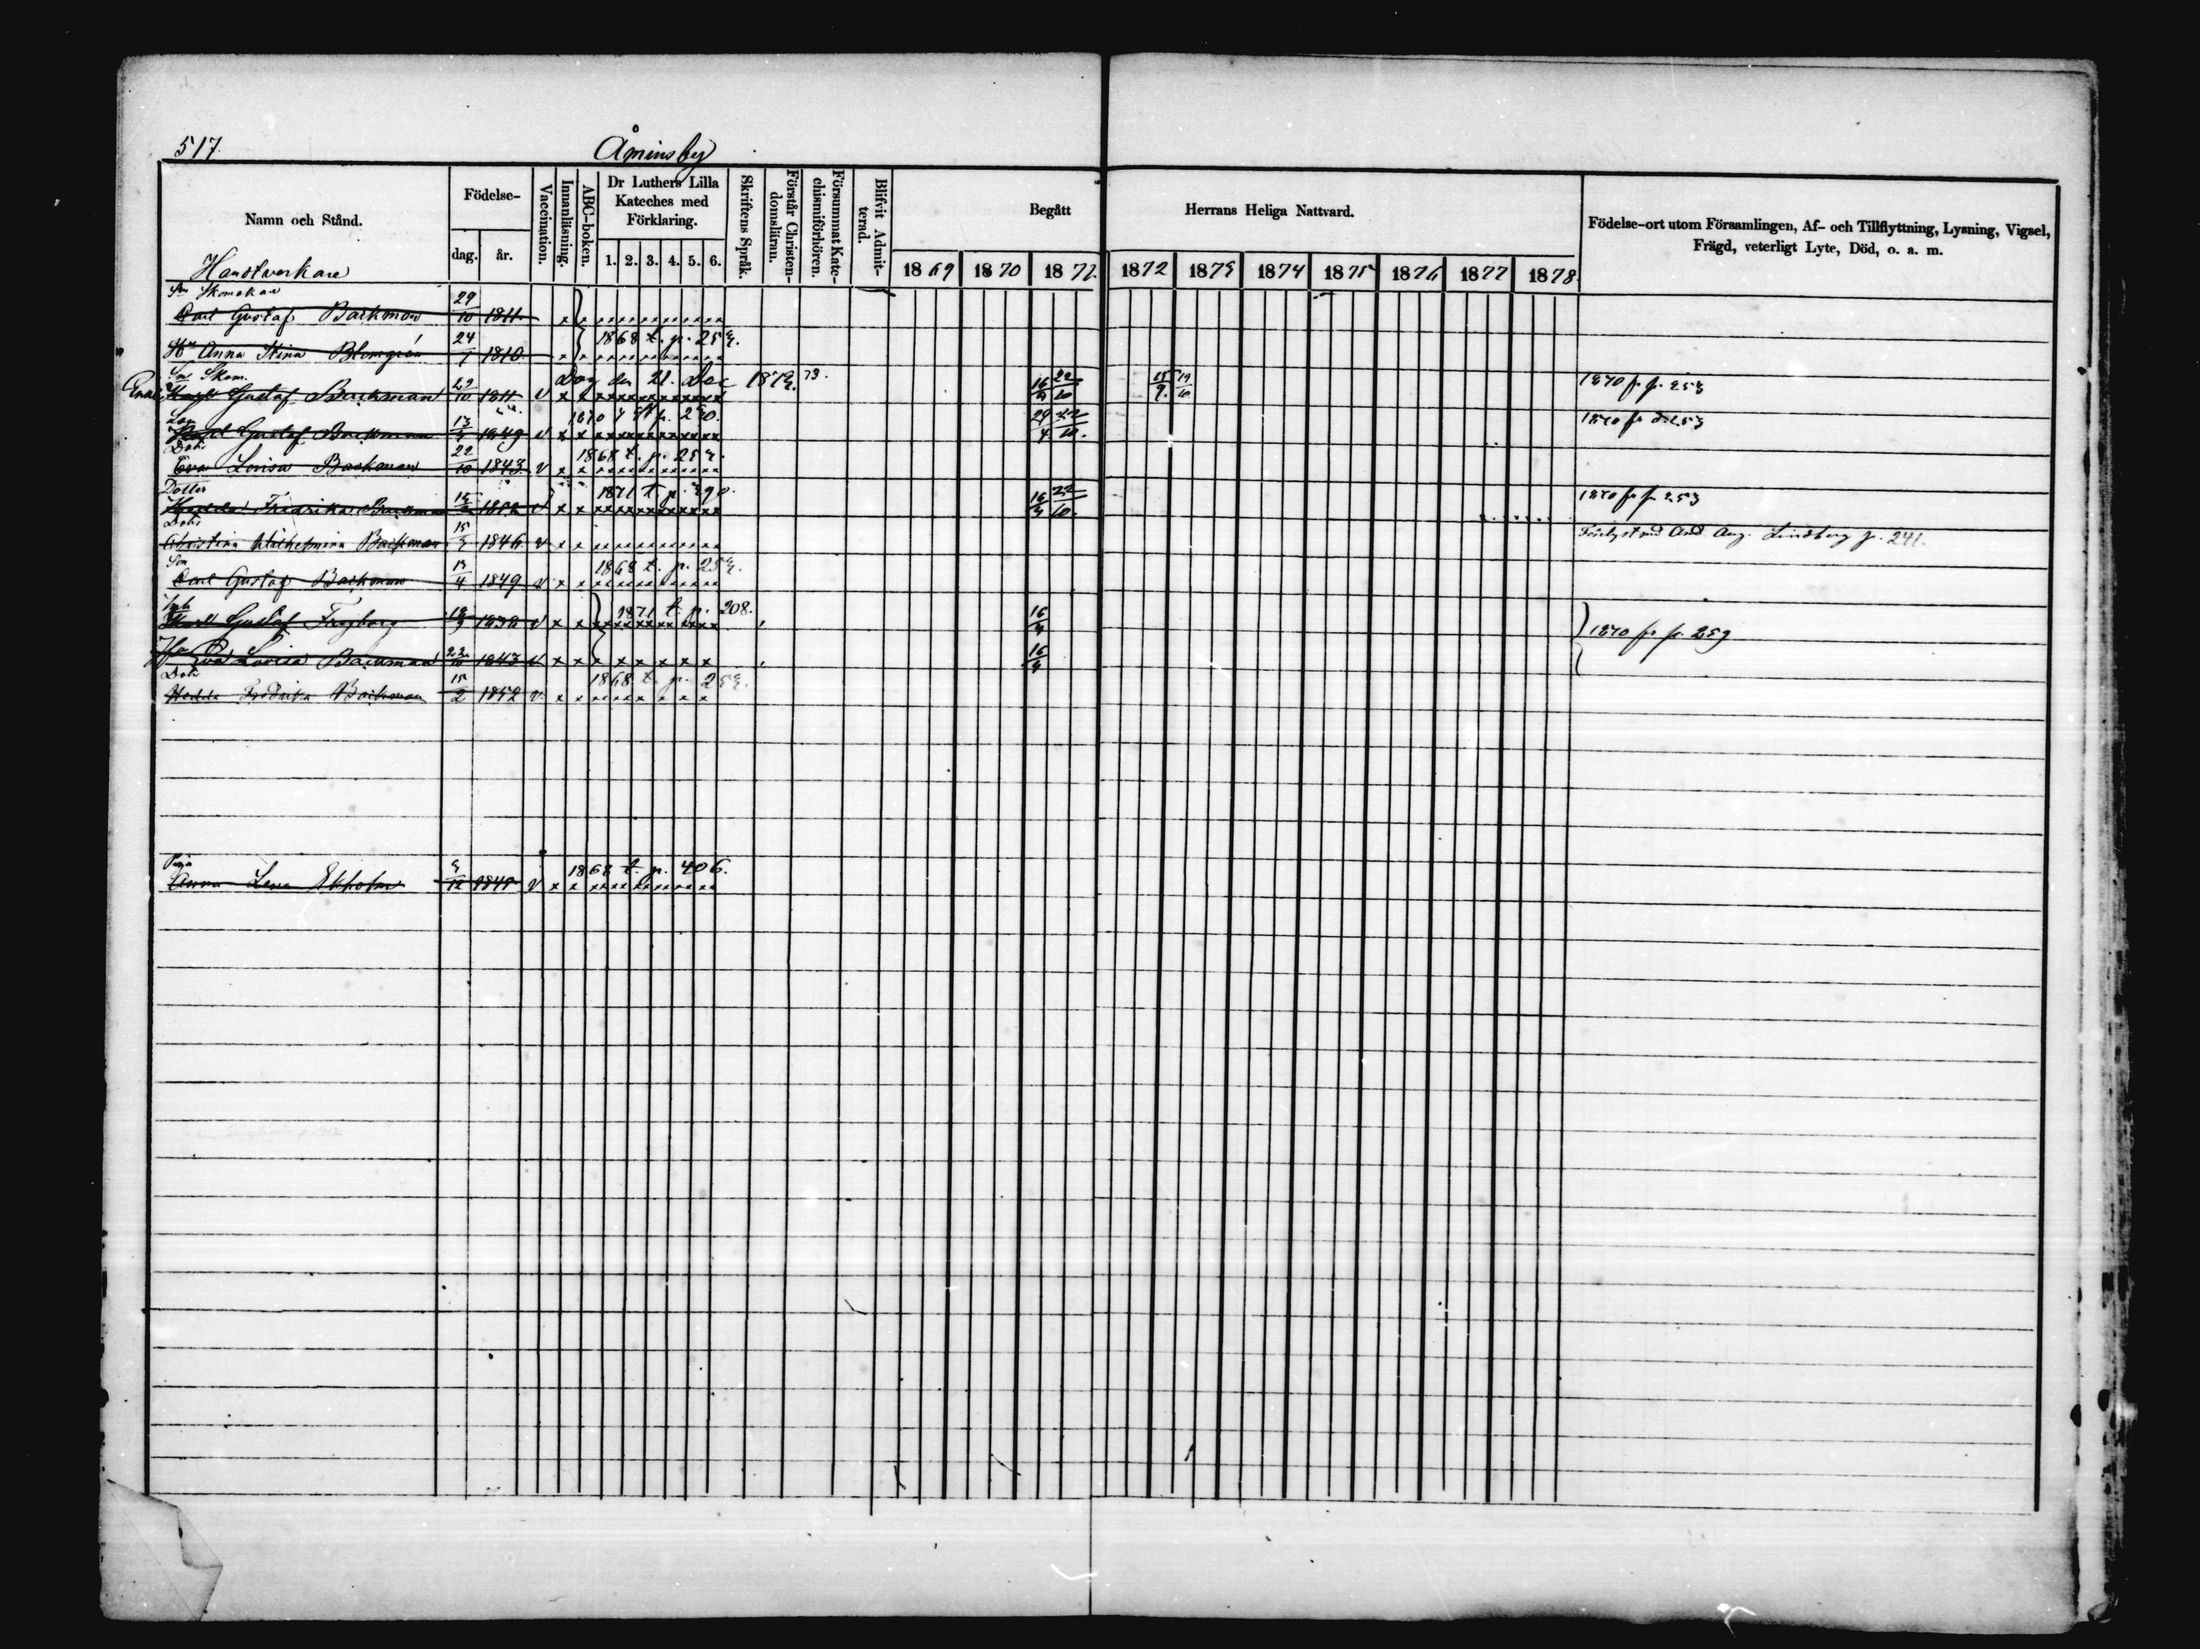 517.
Åminsby
Namn och Stånd.
Födelse-
dag.
år.
Vaccination.
Innanläsning.
ABC-boken.
Dr Luthers Lilla
Kateches med
Förklaring.
1. 2. 3. 4. 5. 6.
Skriftens Språk.
Förstår Christen-
domsläran.
Försummat Kate-
chismiförhören.
Blifvit Admit-
terad.
Begått Herrans Heliga Nattvard.
1869 1870 1871. 1872 1873 1874 1875 1876 1877 1878.
Födelse-ort utom Församlingen, Af- och Tillflyttning, Lysning, Vigsel,
Frägd, veterligt Lyte, Död, o. a. m.
Handtverkare
Skomakar
29
Carl Gustaf Backman 10 1811 x x
24 1868 t. p. 253.
Hu Anna Stina Blomgrén 1 1810 x x
Skom. Död den 28. Dec 1873. 73.
Enkl. Karl Gustaf Backman 29/10 1811 v x x 16/4 22/10 15/9. 19/10 1870 fr p. 253
Son 1870 p. 290.
Karl Gustaf Backman 13/4 1849 v x x 29/4 22/10. 1870 fr p. 253
Dotr 1868 t. p. 253.
Eva Lovisa Backman 22/10 1843 v x x
Dotter 1871 t p. 290.
Hedda Fredrika Backman 15/2 1852 v x x 16/4 22/10. 1870 fr p 253
Dotr
Christina Wilhelmina Backman 15/3 1846 v x x And. Aug. Lindberg p. 241.
Son 1868 t. p. 253.
Carl Gustaf Backman 13/4 1849 v x x
Inh 1871 t. p. 208.
Karl Gustaf Frogberg 1838 v x x 16/4
1870 fr p. 259
Hu Eva Lovisa Backman 22/10 1843 v x x x x x x x x 16/4
Dotr 1868 t. p. 253.
Hedda Fredrika Backman 15/2 1852 v. x x
Piga 1868 t. p. 406.
Anna Lena Ekholm 3/12 1848 v x x